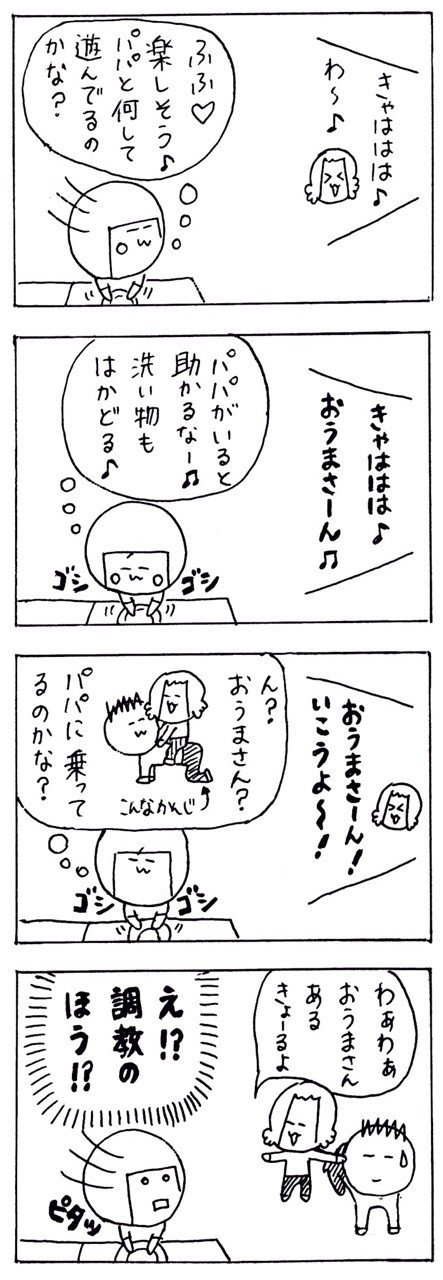 きゃははは♪
わ〜♪
ふふ♡
楽しそう♪
パパと何して
遊んでるの
かな？
きゃははは♪
おうまさーん♫
パパがいると
助かるなー♫
洗い物も
はかどる♪
ゴシ
ゴシ
おうまさーん！
いこうよ〜！
ん？
おうまさん？
こんなかんじ
パパに乗って
るのかな？
ゴシ
ゴシ
わぁわぁ
おうまさん
ある
きょーるよ
え!?
調教の
ほう!?
ピタッ